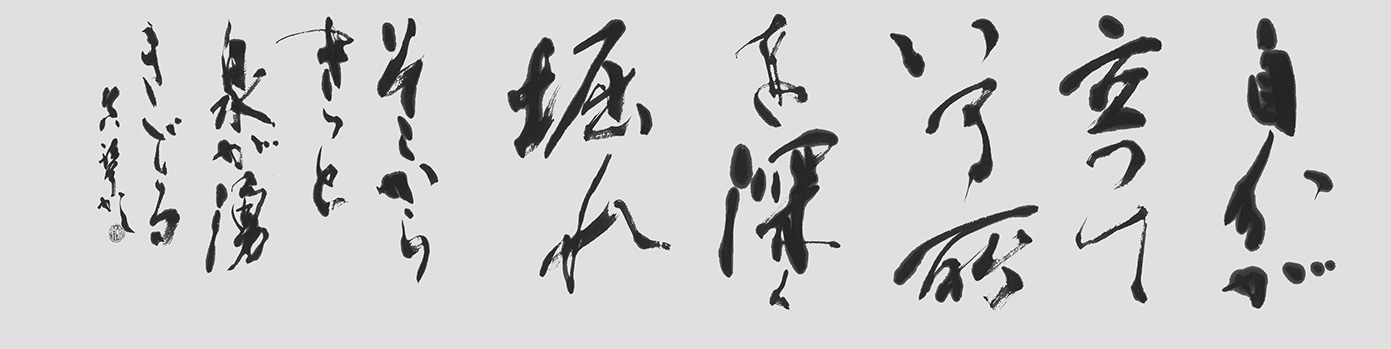 自分が
立って
いる所
を深く
掘れ
そこから
きっと
泉が湧
きでる